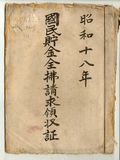 昭和十八年
國民貯金全拂請求領収証